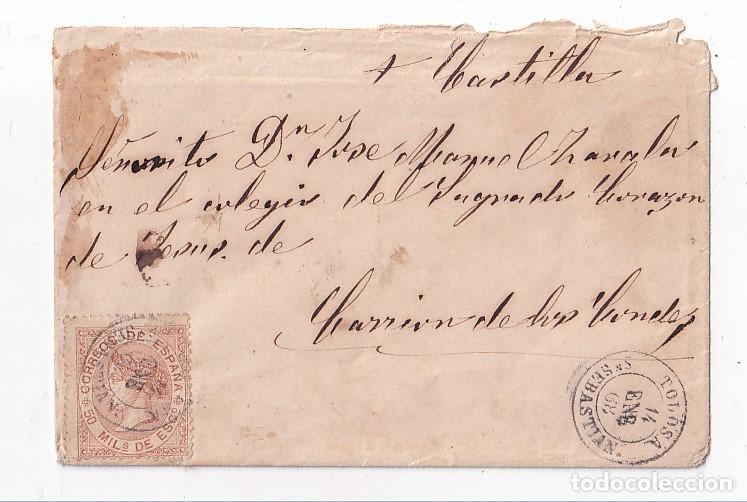 + Castilla
Señorito Dn. Jose Manuel Zavala
en el colegio del Sagrado Corazon
de Jesus. de
Carrion de los Condes
CORREOS DE ESPAÑA
50 MILS DE ESCO
TOLOSA
14
ENE
68
SN SEBASTIAN.
todocoleccion